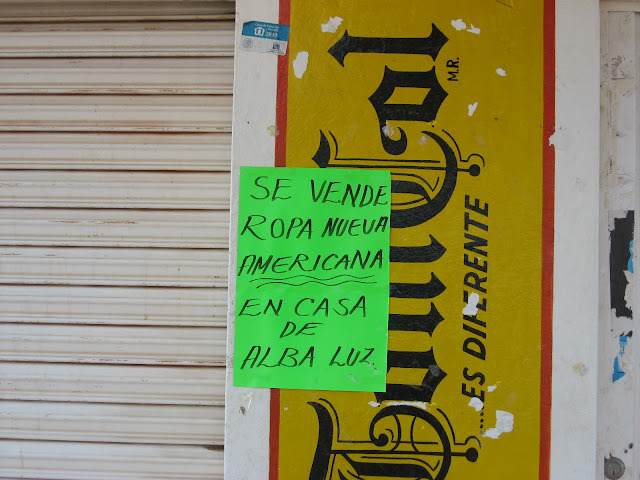 SE VENDE
ROPA NUEVA
AMERICANA
EN CASA
DE
ALBA LUZ
M.R.
...ES DIFERENTE
2010